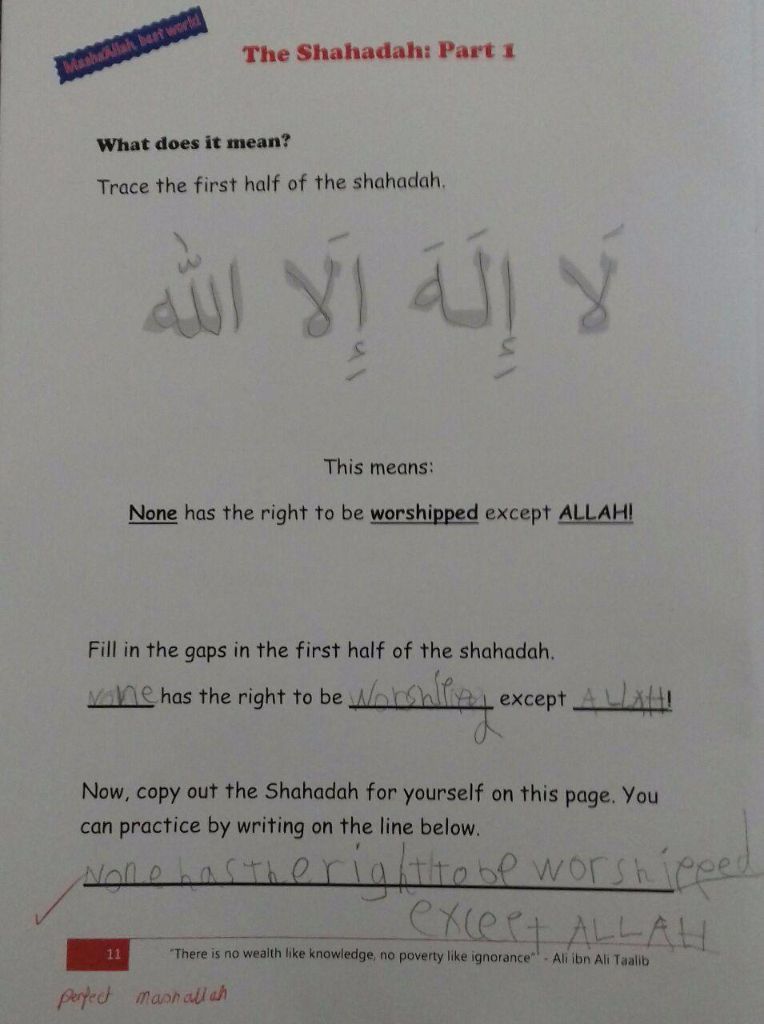 MashaAllah, best work!
The Shahadah: Part 1
What does it mean?
Trace the first half of the shahadah.
لَا إِلَهَ إِلَا اللّٰه
This means:
None has the right to be worshipped except ALLAH!
Fill in the gaps in the first half of the shahadah.
None has the right to be except ALLAH!
Now, copy out the Shahadah for yourself on this page. You
can practice by writing on the line below.
None has the right to be worshipped
except ALLAH
11 "There is no wealth like knowledge, no poverty like ignorance" - Ali ibn Ali Taalib
perfect mashallah